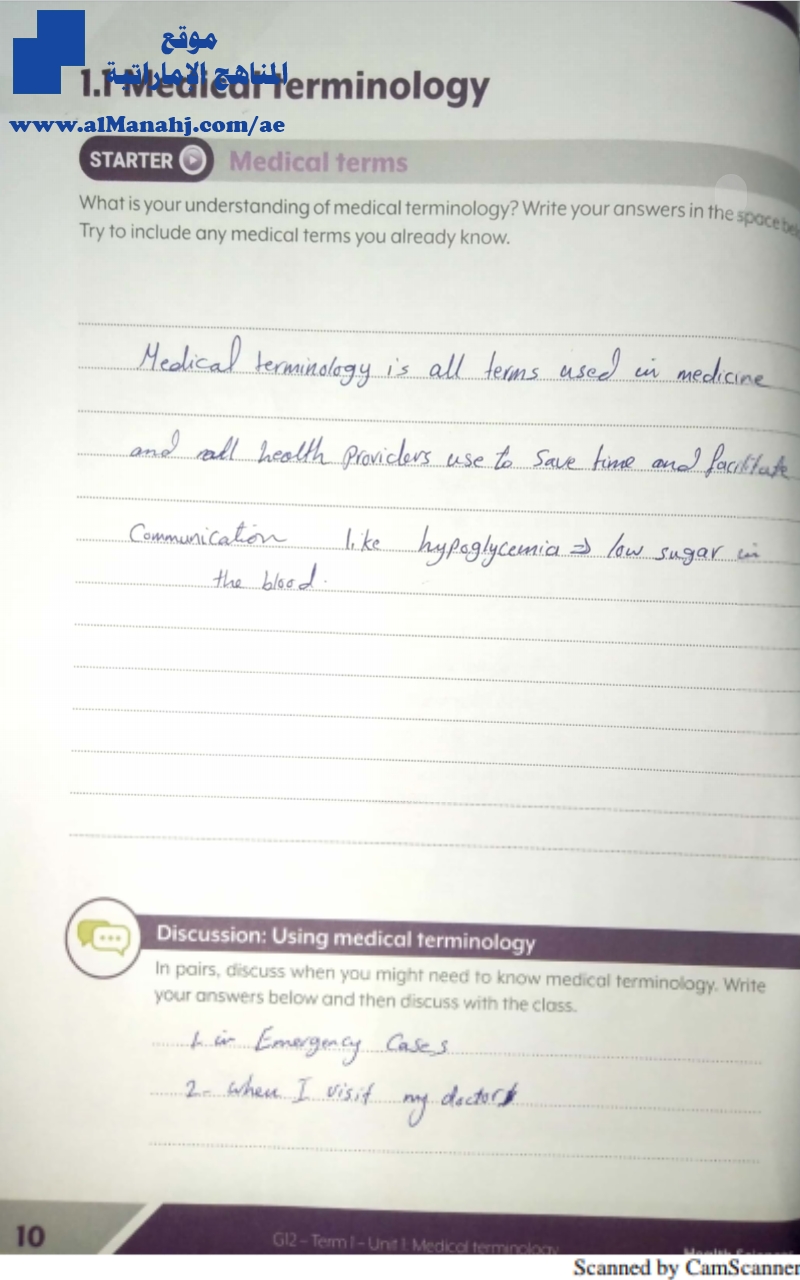 موقع
المناهج الإماراتية
1.1 Medical terminology
www.alManahj.com/ae
STARTER Medical terms
What is your understanding of medical terminology? Write your answers in the space
Try to include any medical terms you already know.
Medical terminology is all terms used in medicine
and all health providers use to save time and facilitate
Communication like hypoglycemia ⇒ low sugar in
the blood.
Discussion: Using medical terminology
In pairs, discuss when you might need to know medical terminology. Write
your answers below and then discuss with the class.
1. in Emergency Cases
2- when I visit my doctor
10
G12 – Term 1 – Unit 1: Medical terminology
Scanned by CamScanner